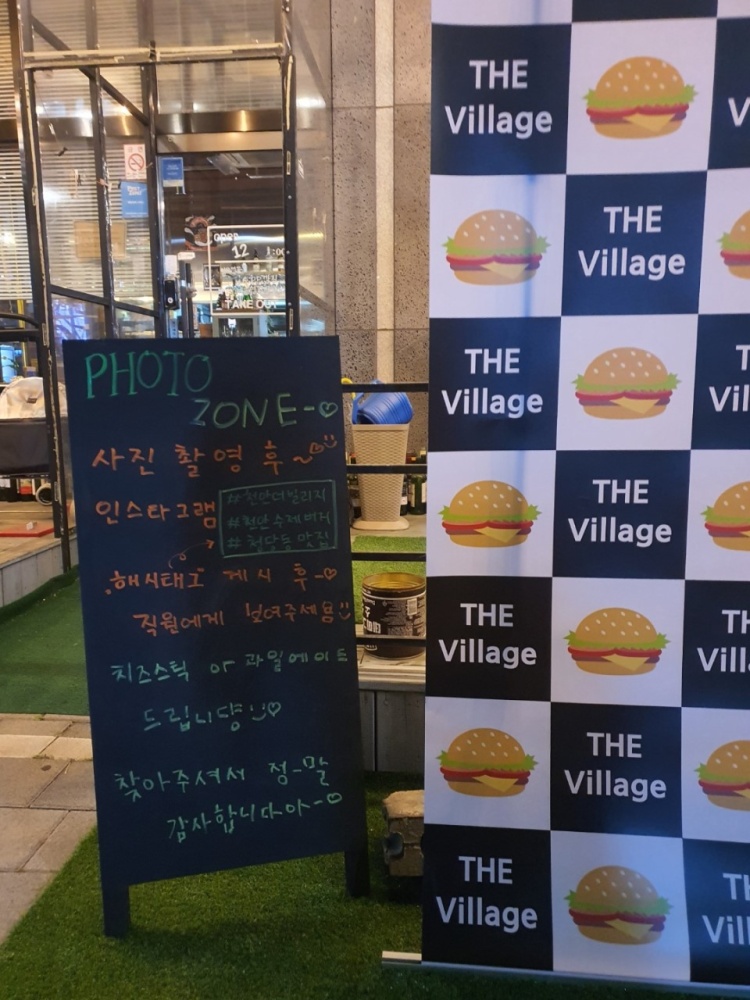 PHOTO
ZONE-♡
사진 촬영 후~♡
인스타그램
#천안더빌리지
#천안수제버거
#청당동맛집
해시태그 게시 후-♡
직원에게 보여주세용
치즈스틱 or 과일에이드
드립니당♡
찾아주셔서 정-말
감사합니다아-♡
open
12
TAKE OUT
THE
Village
THE
Village
THE
Village
THE
Village
THE
Village
THE
Village
THE
Village